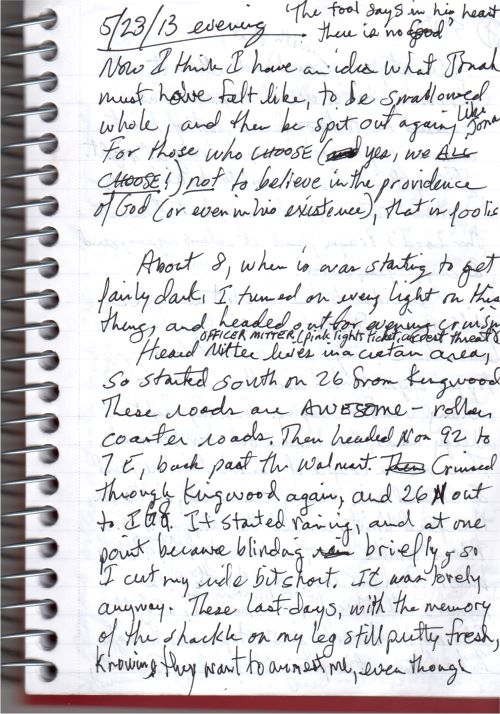 5/23/13 evening 'The fool says in his heart
there is no God'
Now I think I have an idea what Jonah
must have felt like, to be swallowed
whole, and then be spit out again, like Jona
For those who CHOOSE (yes, we ALL
CHOOSE!) not to believe in the providence
of God (or even in his existence), that is foolis
About 8, when is was starting to get
fairly dark, I turned on every light on this
thing, and headed out for evening cruise
OFFICER MITTER (pink lights ticket, arrest threat)
Heard Mitter lives in a certain area,
so started south on 26 from Kingwood
These roads are AWESOME - roller
coaster roads. Then headed N on 92 to
7 E, back past the Walmart. Then Cruised
through Kingwood again, and 26 N out
to I 68. It started raining, and at one
point became blinding briefly, so
I cut my ride bit short. It was lovely
anyway. These last days, with the memory
of the shackle on my leg still pretty fresh,
knowing they want to arrest me, even though